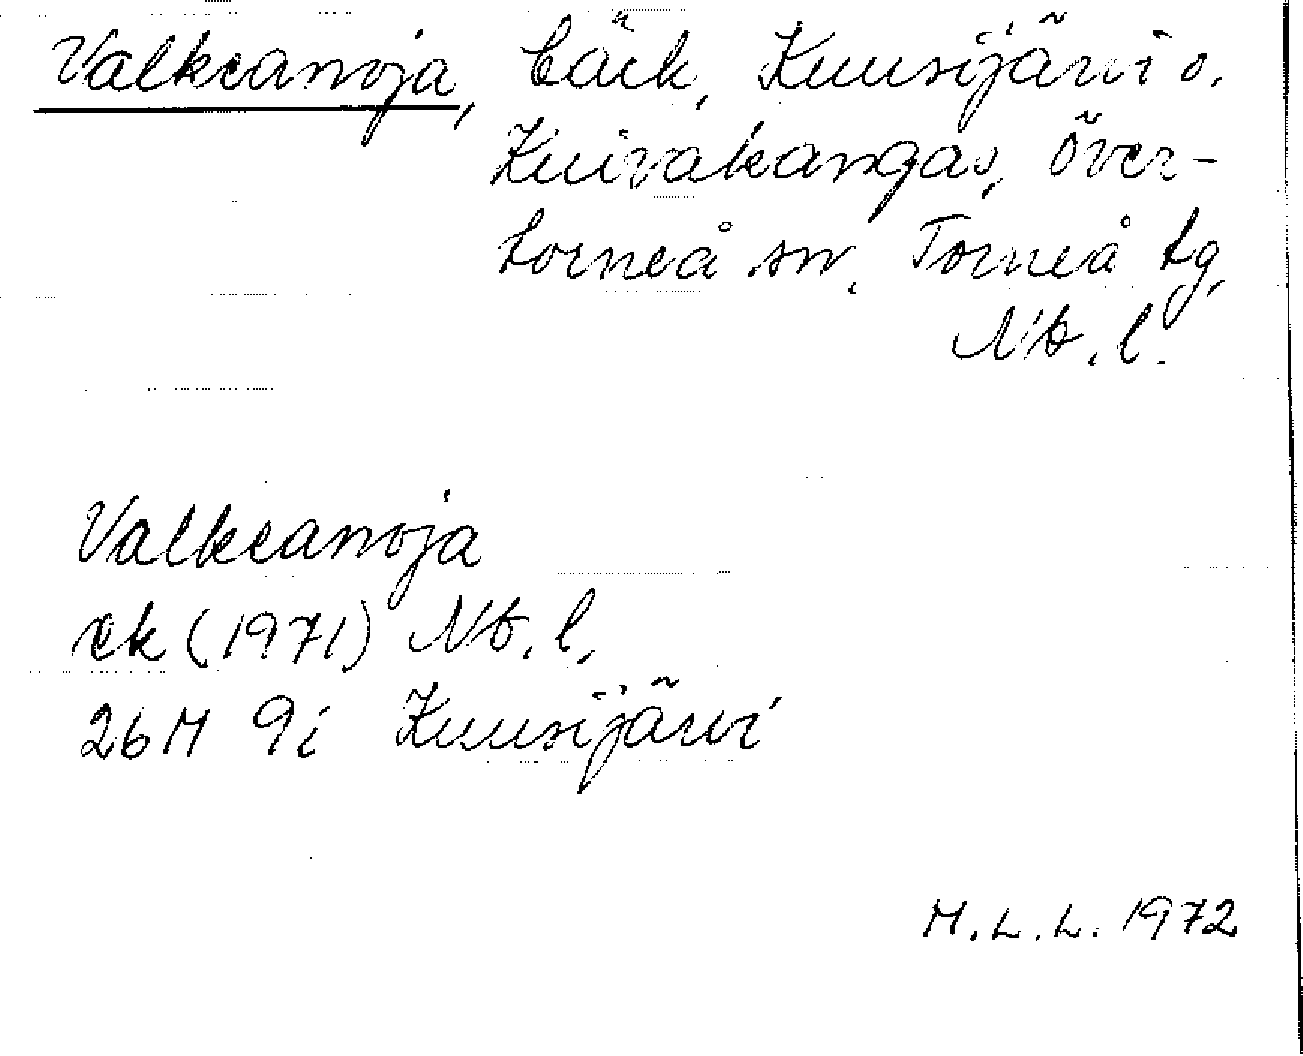 Valkeanoja, bäck, Kuusijärvi o.
Kuivakangas, Över-
torneå sn, Torneå tg,
Nb. l.
Valkeanoja
ek (1971) Nb. l.
26M 9i Kuusijärvi
M.L.L. 1972